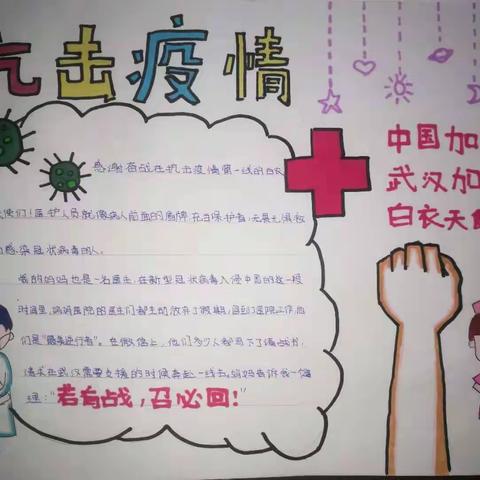 抗击疫情
感谢奋战在抗击疫情第一线的白衣
天使们!医护人员就像病人前面的盾牌,在保护着,无畏无惧救
感染冠状病毒的人。
我的妈妈也是一名医生,在新型冠状病毒入侵中国的这一段
时间里,妈妈医院的医生们都主动放弃了假期,回到了医院工作,他
们是“最美逆行者”。在微信上,他们多少人都写下了请战书,
请求在武汉需要支援的时候奔赴一线去。妈妈告诉我一个道
理:“若有战,召必回!”
中国加
武汉加
白衣天使